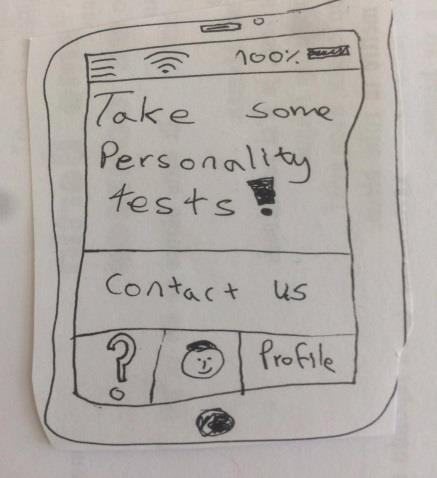 100%
Take some
Personality
tests!
Contact us
?
Profile